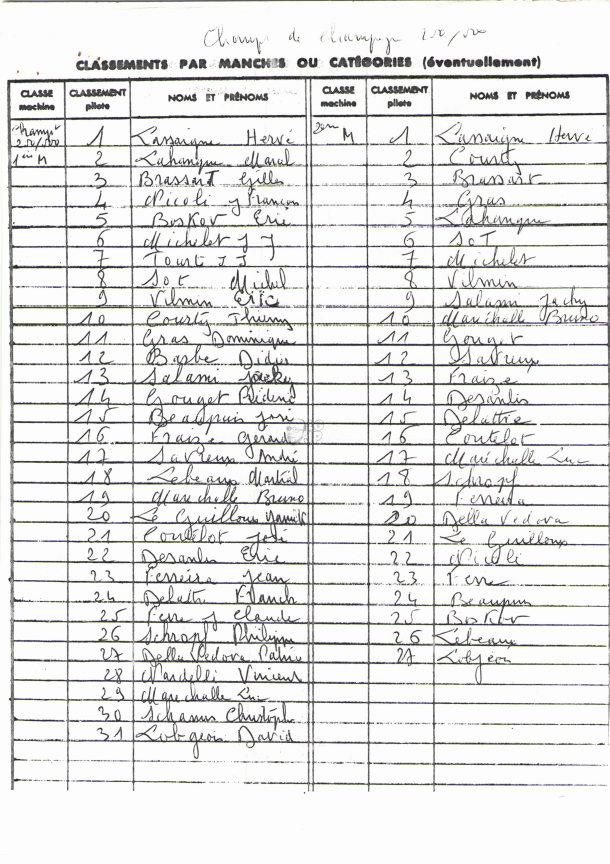 Champ de champagne 250/500
CLASSEMENTS PAR MANCHES OU CATÉGORIES (éventuellement)
CLASSE machine CLASSEMENT pilote NOMS ET PRÉNOMS CLASSE machine CLASSEMENT pilote NOMS ET PRÉNOMS
Champt 250/500 1 Lassaigne Hervé 2eme M 1 Lassaigne Herve
1ere M 2 Lahangue Maral 2 Courty
3 Brassart Gilles 3 Brassart
4 Nicoli J François 4 Gras
5 Boskov Eric 5 Lahangue
6 Michelet J J 6 Sot
7 Tourt J J 7 Michelet
8 Sot Michel 8 Vilmin
9 Vilmin Eric 9 Salami Jacky
10 Courty Thierry 10 Maréchalle Bruno
11 Gras Dominique 11 Gouget
12 Barbe Didier 12 Savreux
13 Salami Jacky 13 Fraize
14 Gouget 14 Desanlis
15 Beaupuis José 15 Delattre
16 Fraize Gerard 16 Coutelot
17 Savreux André 17 Maréchalle Luc
18 Lebeaux Martial 18 Schropf
19 Marechalle Bruno 19 Ferreira
20 Le Guilloux Yannick 20 Della Vedova
21 Coutelot José 21 Le Guilloux
22 Desanlis Eric 22 Nicoli
23 Ferreira Jean 23 Ferre
24 Delattre Franck 24 Beaupuis
25 Ferre J Claude 25 Boskov
26 Schropf Philippe 26 Lebeaux
27 Della Vedova Patrice 27 Lobgeois
28 Nardelli Vincent
29 Marechalle Luc
30 Schamm Christophe
31 Lobgeois David